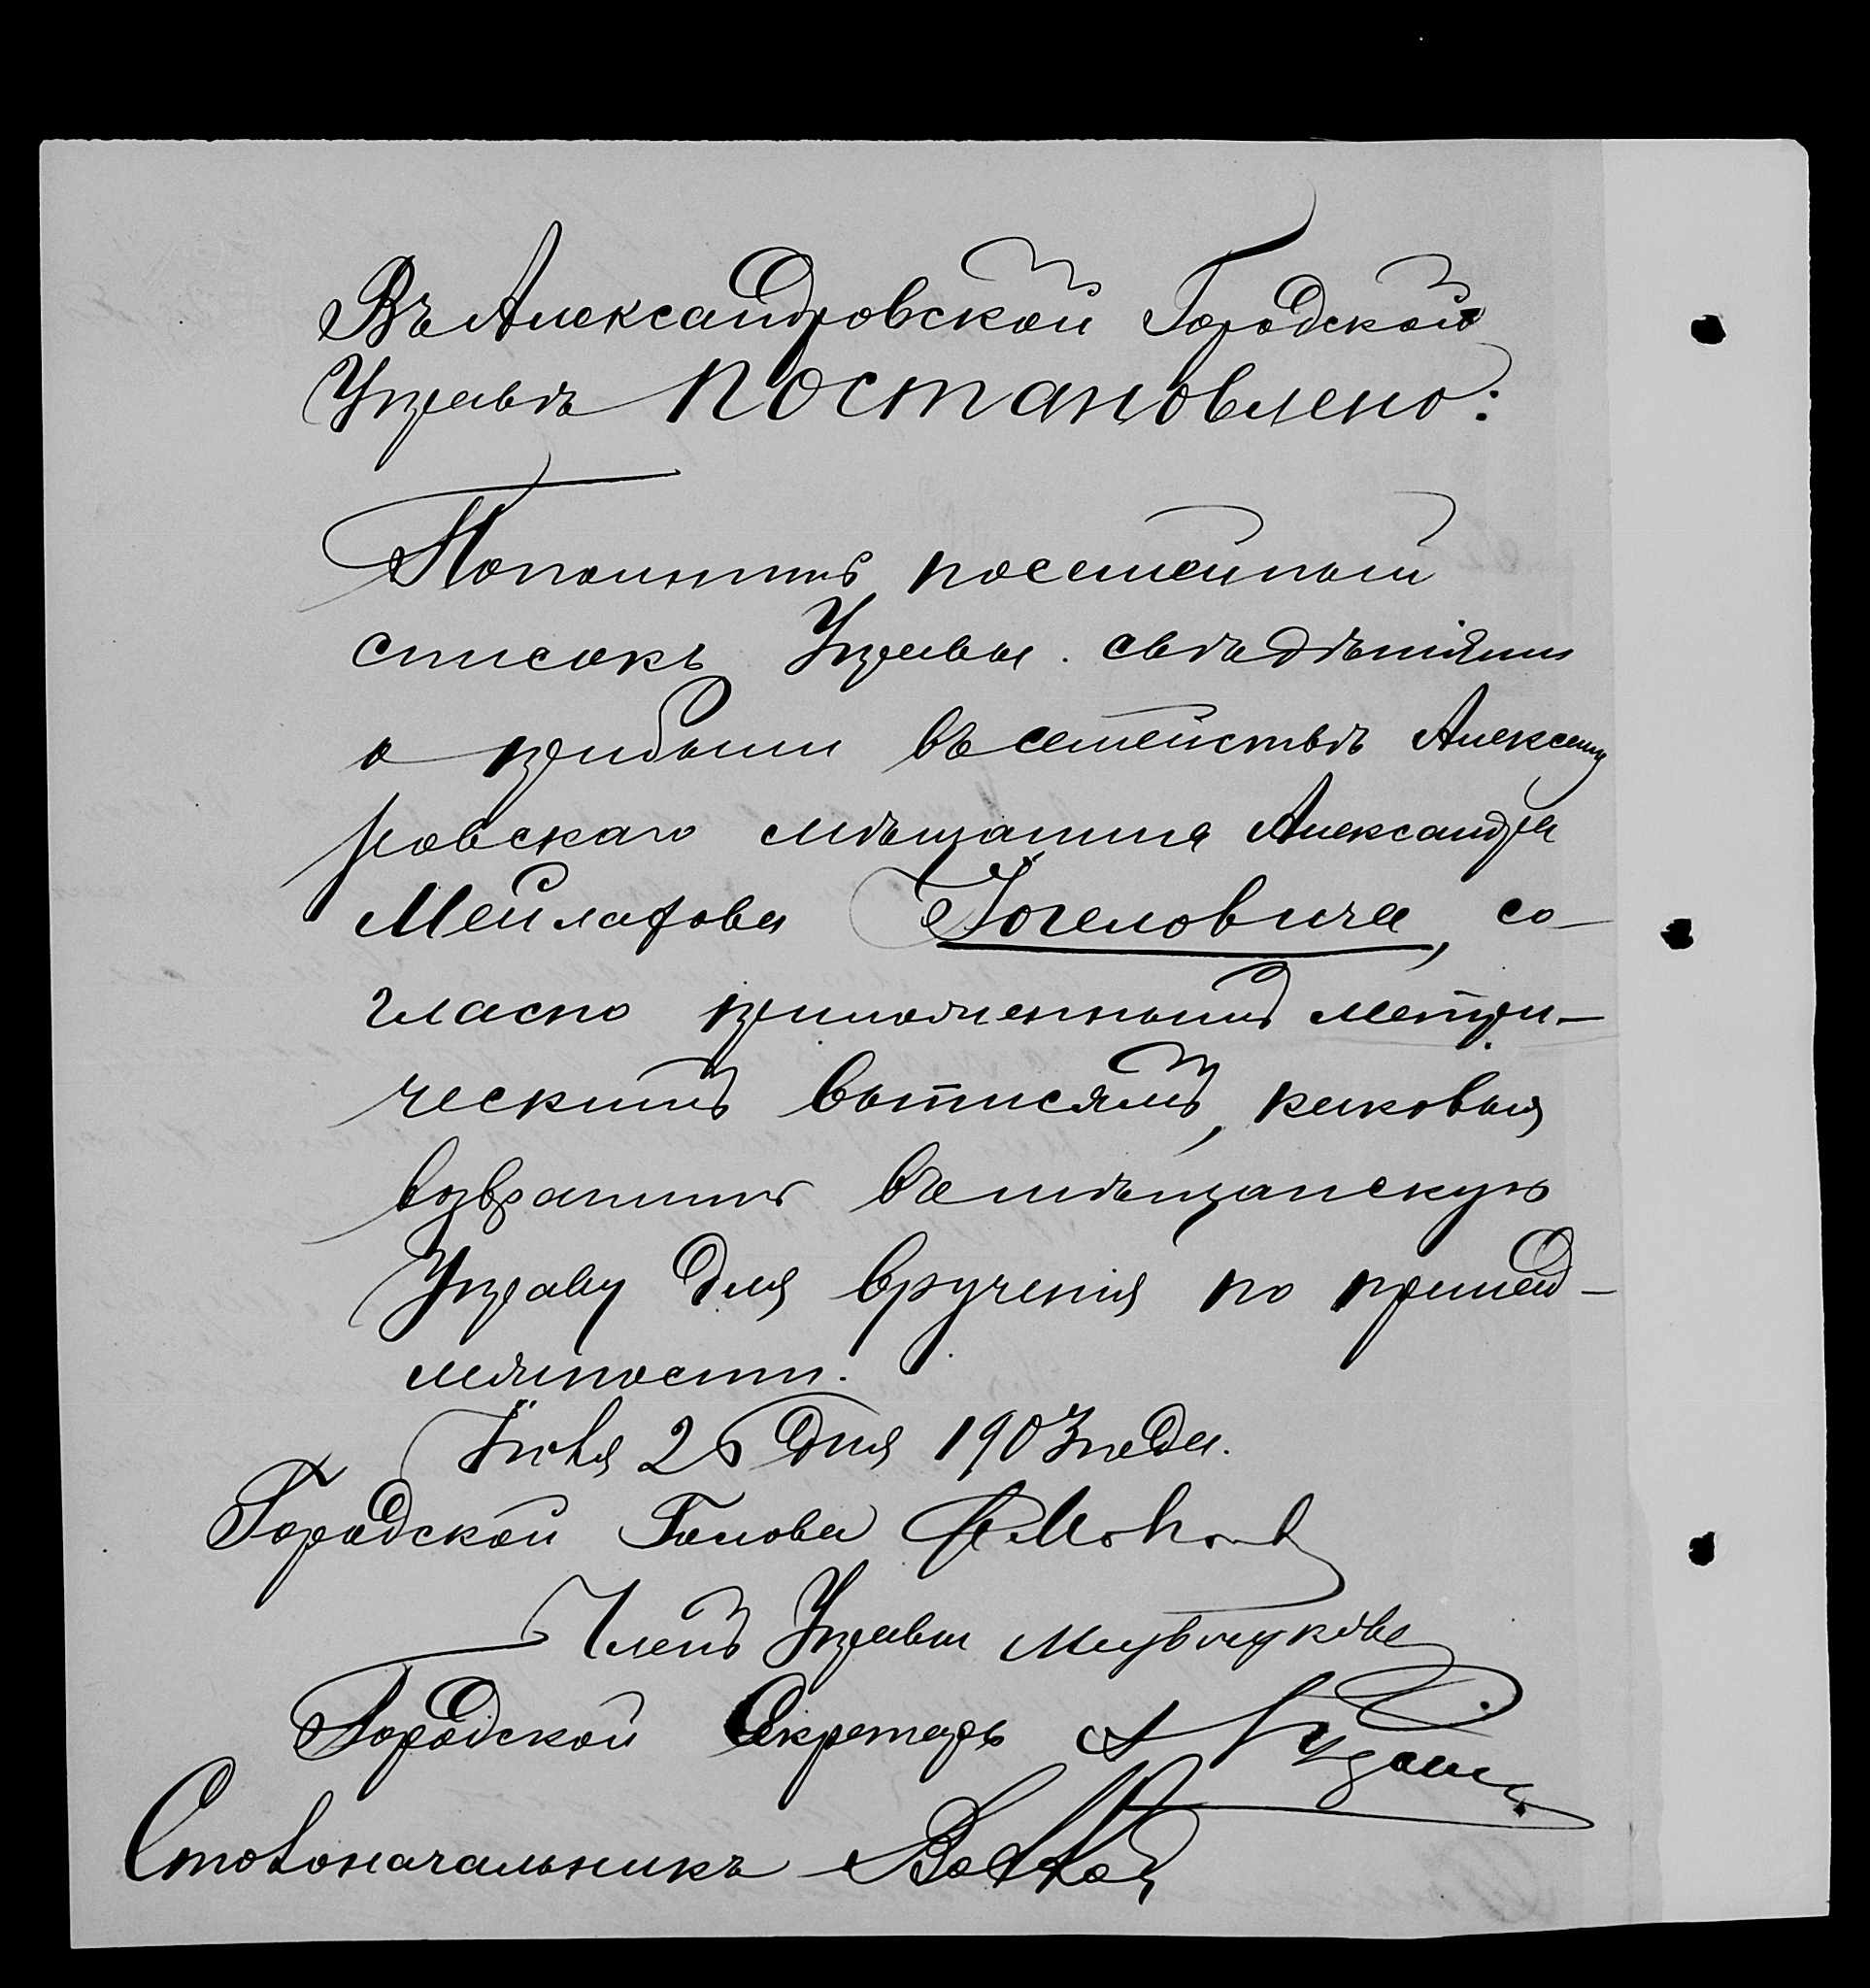 Въ Александровской Городской
Управѣ постановлено:
Пополнить посемейный
списокъ Управы свѣдѣніями
о прибыли въ семействѣ Александ
ровскаго мѣщанина Александра
Мейлахова Гогеловича, со-
гласно приложеннымъ метри-
ческимъ выписямъ, каковыя
возвратить въ мѣщанскую
Управу для врученія по принад-
лежности.
Іюня 26 дня 1903 года.
Городской Голова
Членъ Управы
Городской Секретарь
Столоначальникъ